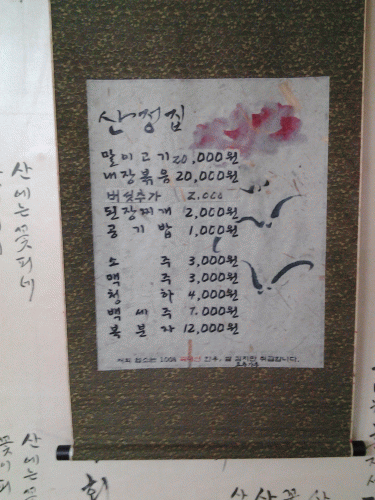 산정집
말이고기 20,000원
내장볶음 20,000원
버섯추가 2,000
된장찌개 2,000원
공기밥 1,000원
소주 3,000원
맥주 3,000원
청하 4,000원
백세주 7,000원
복분자 12,000원
저희 업소는 100% 한우, 쌀 김치만 취급합니다.
산에는 꽃피네
산에는
꽃이피
회
산산꽃